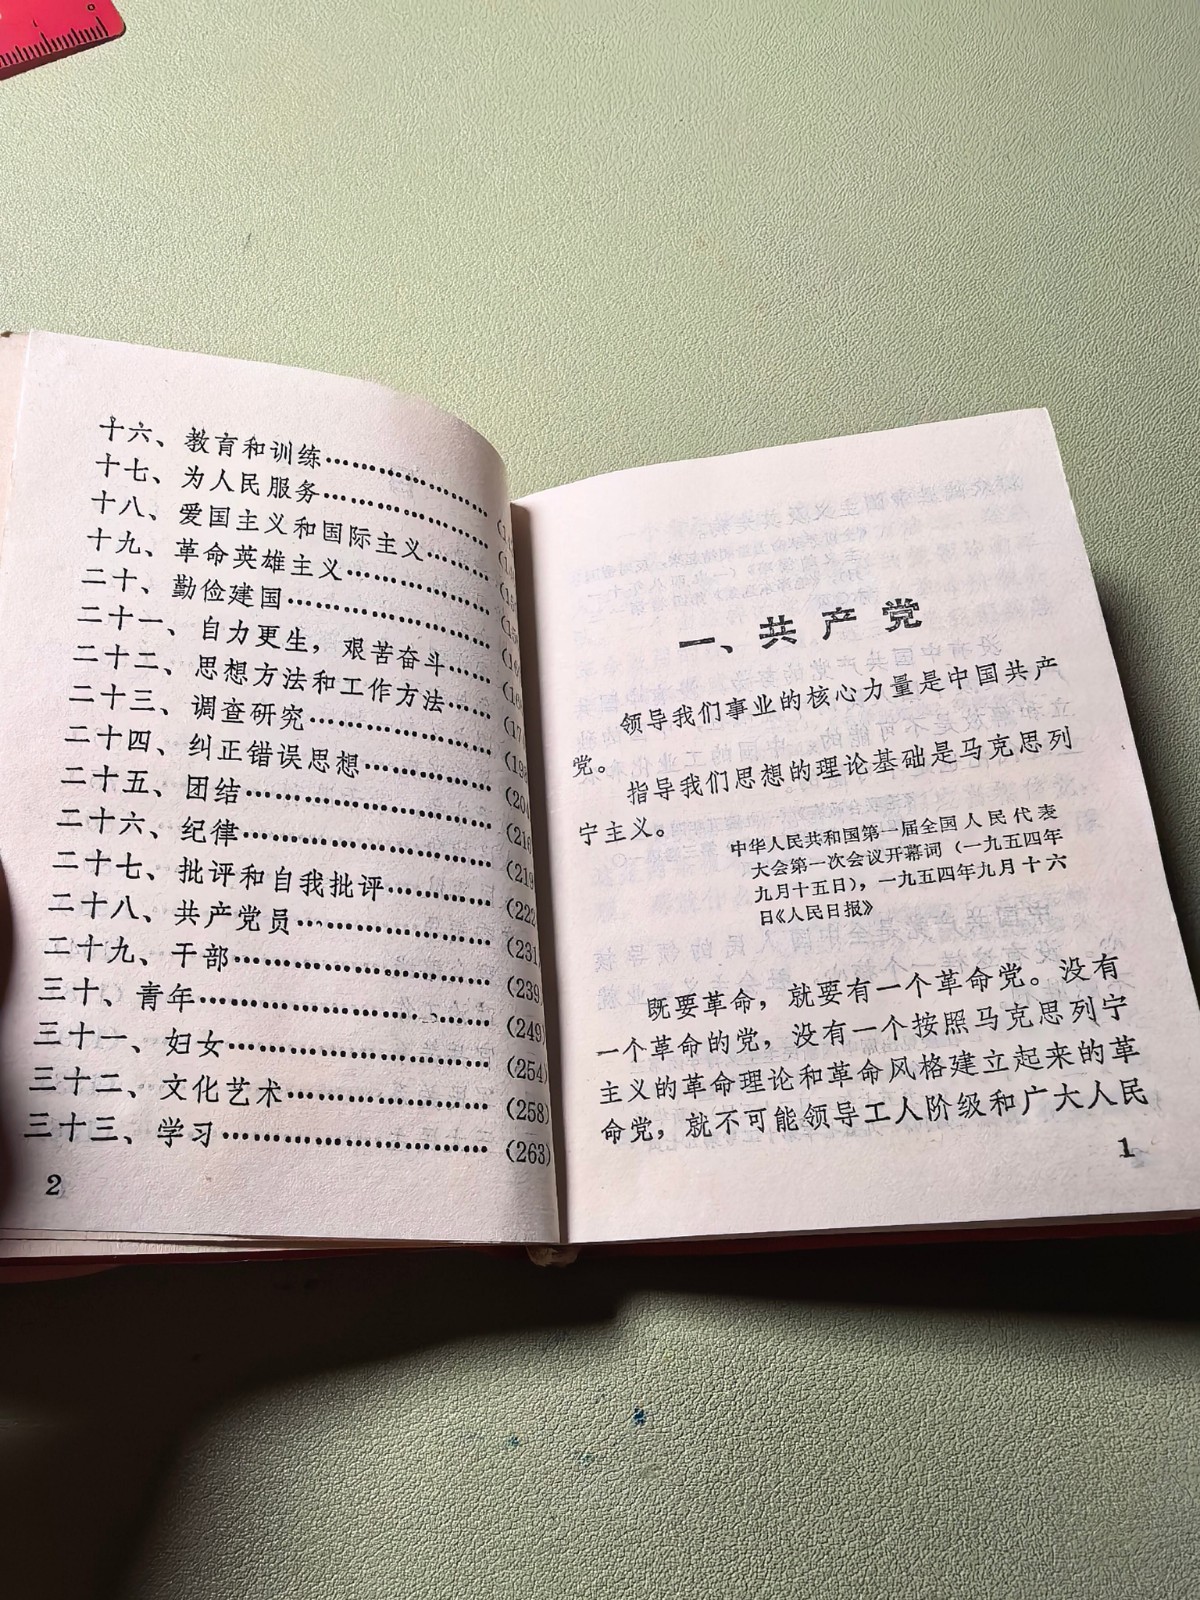 十六、教育和训练……………
十七、为人民服务……………
十八、爱国主义和国际主义……
十九、革命英雄主义…………
二十、勤俭建国………………
二十一、自力更生，艰苦奋斗……
二十二、思想方法和工作方法……
二十三、调查研究……………
二十四、纠正错误思想…………
二十五、团结…………………(204
二十六、纪律…………………(216
二十七、批评和自我批评………(219
二十八、共产党员……………(222
二十九、干部…………………(231)
三十、青年……………………(239)
三十一、妇女…………………(249)
三十二、文化艺术……………(254)
三十三、学习…………………(258)
(263)
2
一、共产党
领导我们事业的核心力量是中国共产
党。
指导我们思想的理论基础是马克思列
宁主义。
中华人民共和国第一届全国人民代表
大会第一次会议开幕词（一九五四年
九月十五日），一九五四年九月十六
日《人民日报》
既要革命，就要有一个革命党。没有
一个革命的党，没有一个按照马克思列宁
主义的革命理论和革命风格建立起来的革
命党，就不可能领导工人阶级和广大人民
1